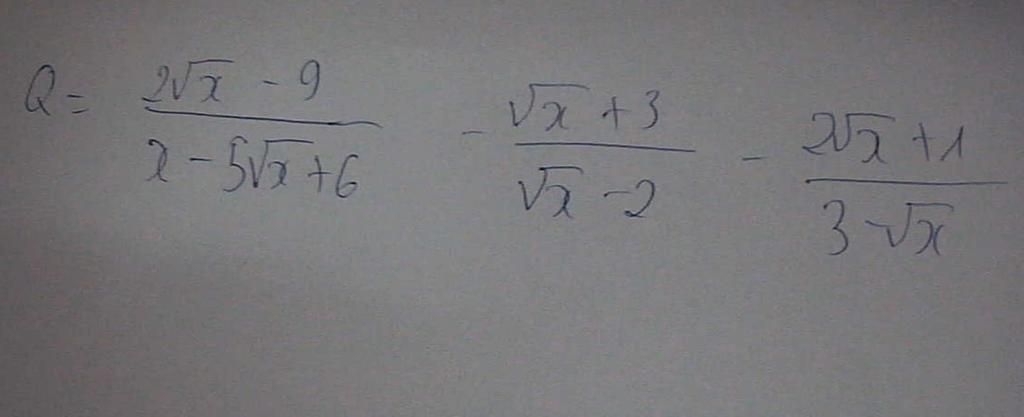 Q = \frac{2\sqrt{x} - 9}{x - 5\sqrt{x} + 6} - \frac{\sqrt{x} + 3}{\sqrt{x} - 2} - \frac{2\sqrt{x} + 1}{3 - \sqrt{x}}